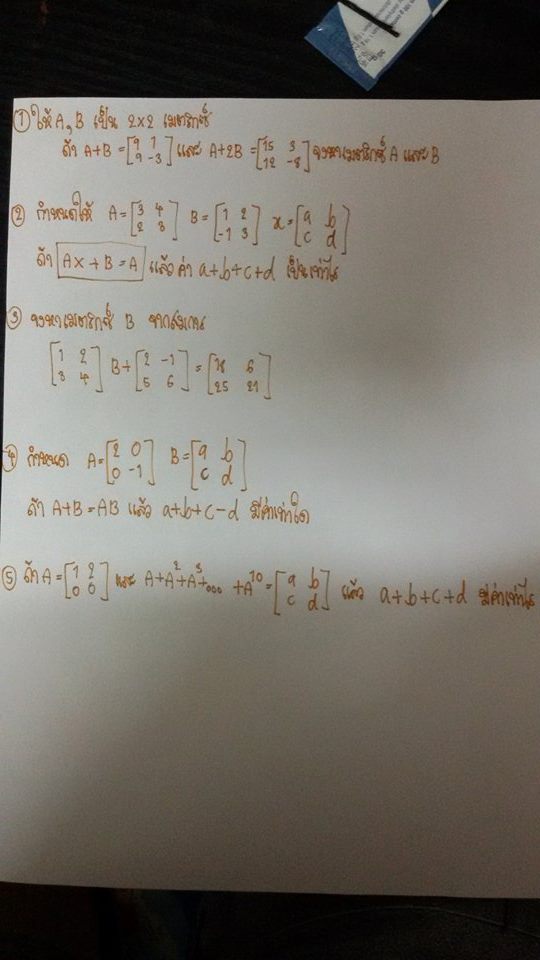 ① ให้ A, B เป็น 2x2 เมตริกซ์
ถ้า A+B = [9 1 9 -3] และ A+2B = [15 3 12 -8] จงหาเมตริกซ์ A และ B
② กำหนดให้ A = [3 4 2 3] B = [1 2 -1 3] x = [a b c d]
ถ้า Ax+B=A แล้วค่า a+b+c+d เป็นเท่าไร
③ จงหาเมตริกซ์ B จากสมการ
[1 2 3 4] B + [2 -1 5 6] = [18 6 25 21]
④ กำหนด A = [2 0 0 -1] B = [a b c d]
ถ้า A+B = AB แล้ว a+b+c-d มีค่าเท่าใด
⑤ ถ้า A = [1 2 0 0] และ A+A²+A³+... +A¹⁰ = [a b c d] แล้ว a+b+c+d มีค่าเท่าไร